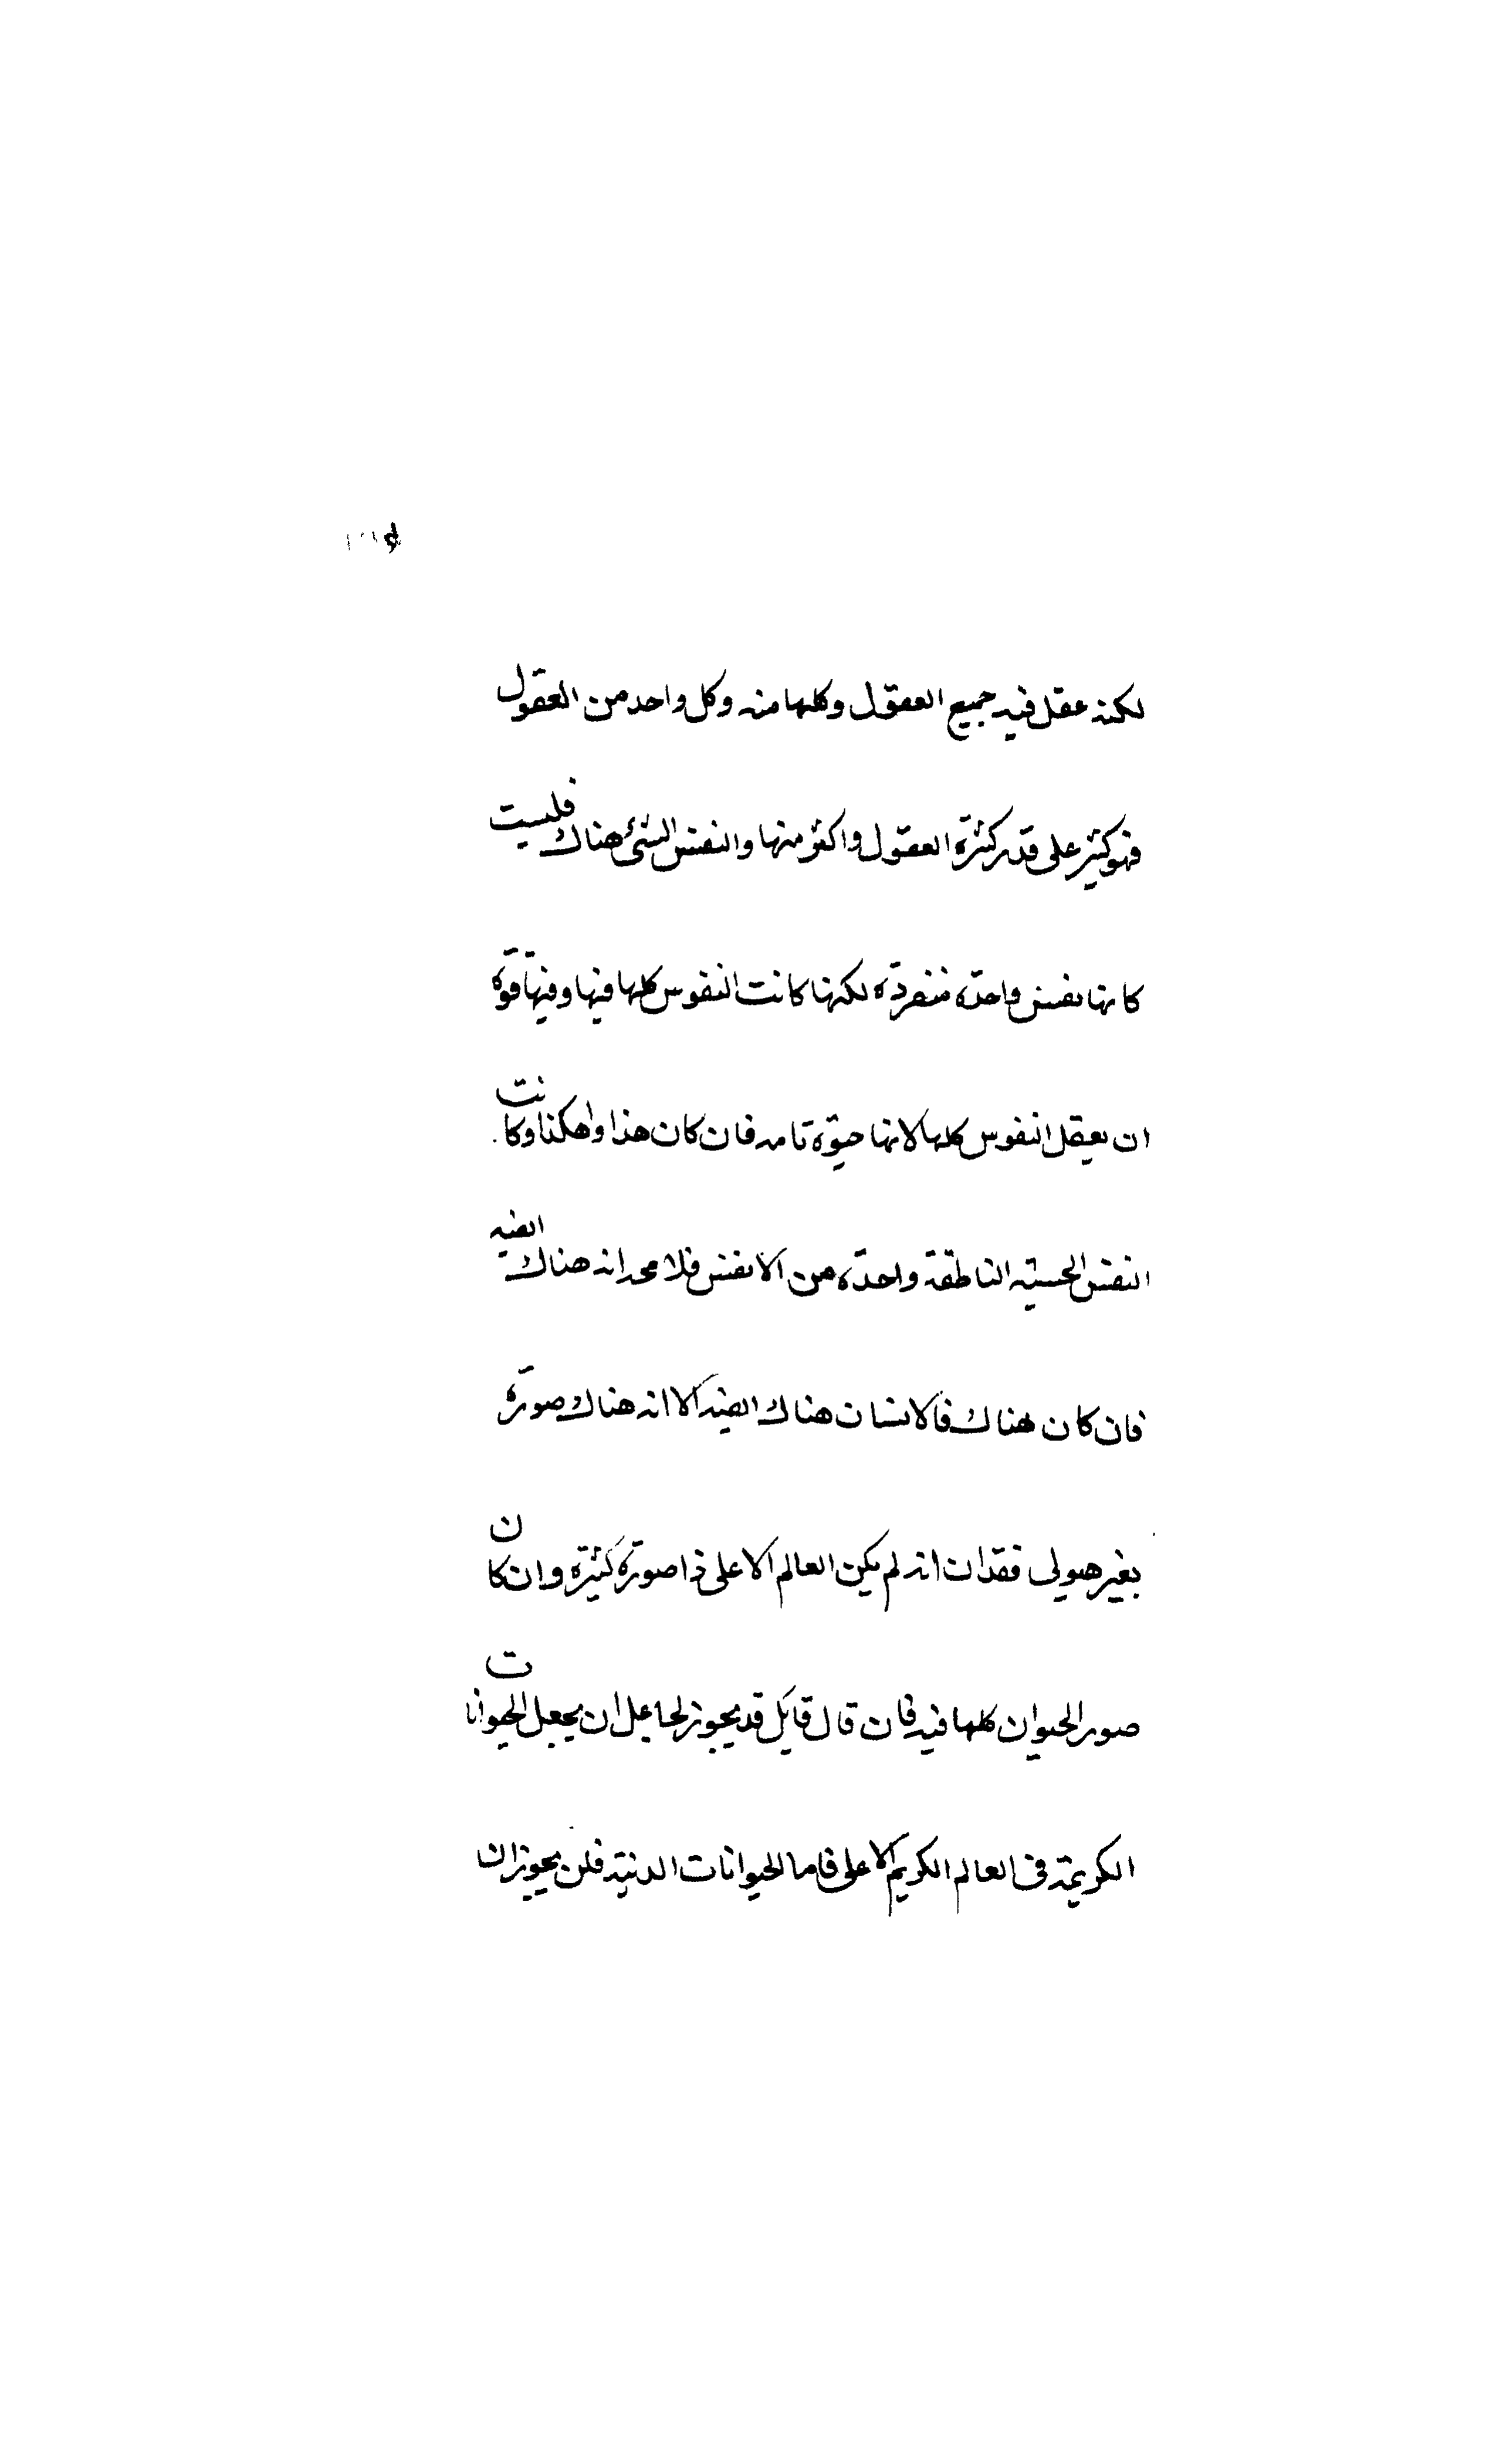 لكنه عقل فيه جميع العقول وكلها منه وكل واحد من العقول
فهو كثير على قدر كثرة العقول واكثر منها والنفس التى هناك فليست
كانها نفس واحدة منفردة لكنها كانت النفوس كلها فيها وفيها قوة
ان يعقل النفوس كلها لانها حيوة تامه فان كان هذا هكذا وكانت
النفس الحسيه الناطقة واحدة من الانفس فلا محد انه هناك ايضه
فان كان هناك فالانسان هناك ايضه الا انه هناك صورة
بغير هيولى فقد ان انه لم يكن العالم الاعلى ذا صورة كثيرة وان كان
صور الحيوان كلها فيه فان قال قايل قد يجوز لجاعل ان يجعل الحيوانات
الكريمة فى العالم الكريم الاعلى فاما الحيوانات الدنية فلن يجوز ان